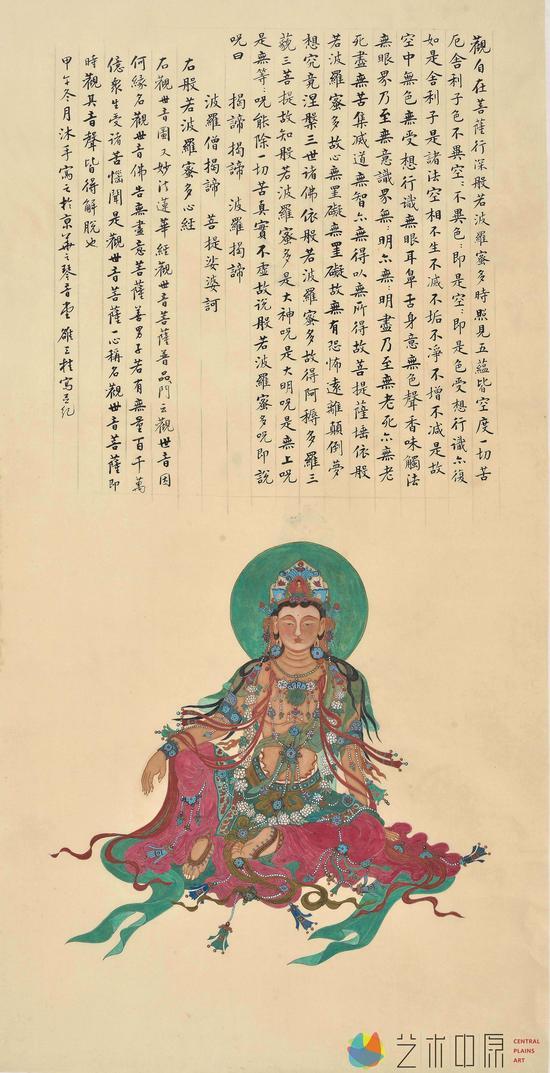 觀自在菩薩行深般若波羅蜜多時照見五蘊皆空度一切苦
厄舍利子色不異空〻不異色〻即是空〻即是色受想行識亦復
如是舍利子是諸法空相不生不滅不垢不淨不增不減是故
空中無色無受想行識無眼耳鼻舌身意無色聲香味觸法
無眼界乃至無意識界無〻明亦無〻明盡乃至無老死亦無老
死盡無苦集滅道無智亦無得以無所得故菩提薩埵依般
若波羅蜜多故心無罣礙無罣礙故無有恐怖遠離顛倒夢
想究竟涅槃三世諸佛依般若波羅蜜多故得阿耨多羅三
藐三菩提故知般若波羅蜜多是大神咒是大明咒是無上咒
是無等〻咒能除一切苦真實不虛故說般若波羅蜜多咒即說
咒曰 揭諦揭諦 波羅揭諦
波羅僧揭諦 菩提娑婆訶
右般若波羅蜜多心經
右觀世音圖又妙法蓮華經觀世音菩薩普品門云觀世音因
何緣名觀世音佛告無盡意菩薩善男子若有無量百千萬
億衆生受諸苦惱聞是觀世音菩薩一心稱名觀世音菩薩即
時觀其音聲皆得解脫也
甲午冬月沐手寫之於京華之琴音堂雒三桂寫并紀
艺术中原
CENTRAL
PLAINS
ART